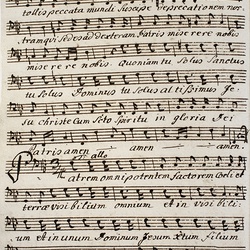 tollis peccata mundi Suscipe deprecationem nos
tram qui sedes ad dexteram Patris miserere nobis
miserere nobis. Quoniam tu Solus Sanctus
tu Solus Dominus tu Solus altissimus Je
su christe Cum Sto Spiritu in gloria Dei
Patris amen amen amen.
allo
Patrem omnipotentem factorem coeli et
terrae visibilium omnium et in visibili
um et in unum Dominum Jesum Xtum filium